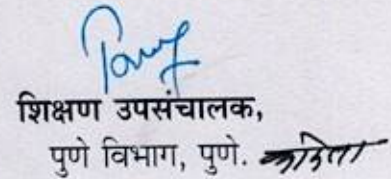 शिक्षण उपसंचालक,
पुणे विभाग, पुणे. करिता